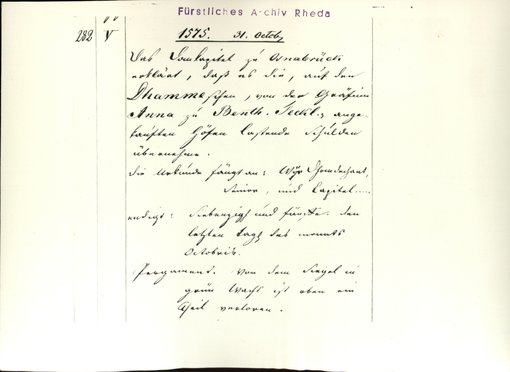 Fürstliches Archiv Rheda
" "
282 V 1575. 31. Octob.
Das Domkapitel zu Osnabrück
erklärt, daß es die, auf den
Dhammeschen, von der Gräfinn
Anna zu Benth. Teckl. ange-
kauften Höfen lastende Schulden
übernehme.
Die Urkunde fängt an: Wÿr Thomdechant,
Senior, und Capitel....
endigt: Siebenzigh und fünffe. den
letzten tagh des monats
Octobris.
Pergament. Von dem Siegel in
grün Wachs ist oben ein
Theil verloren.